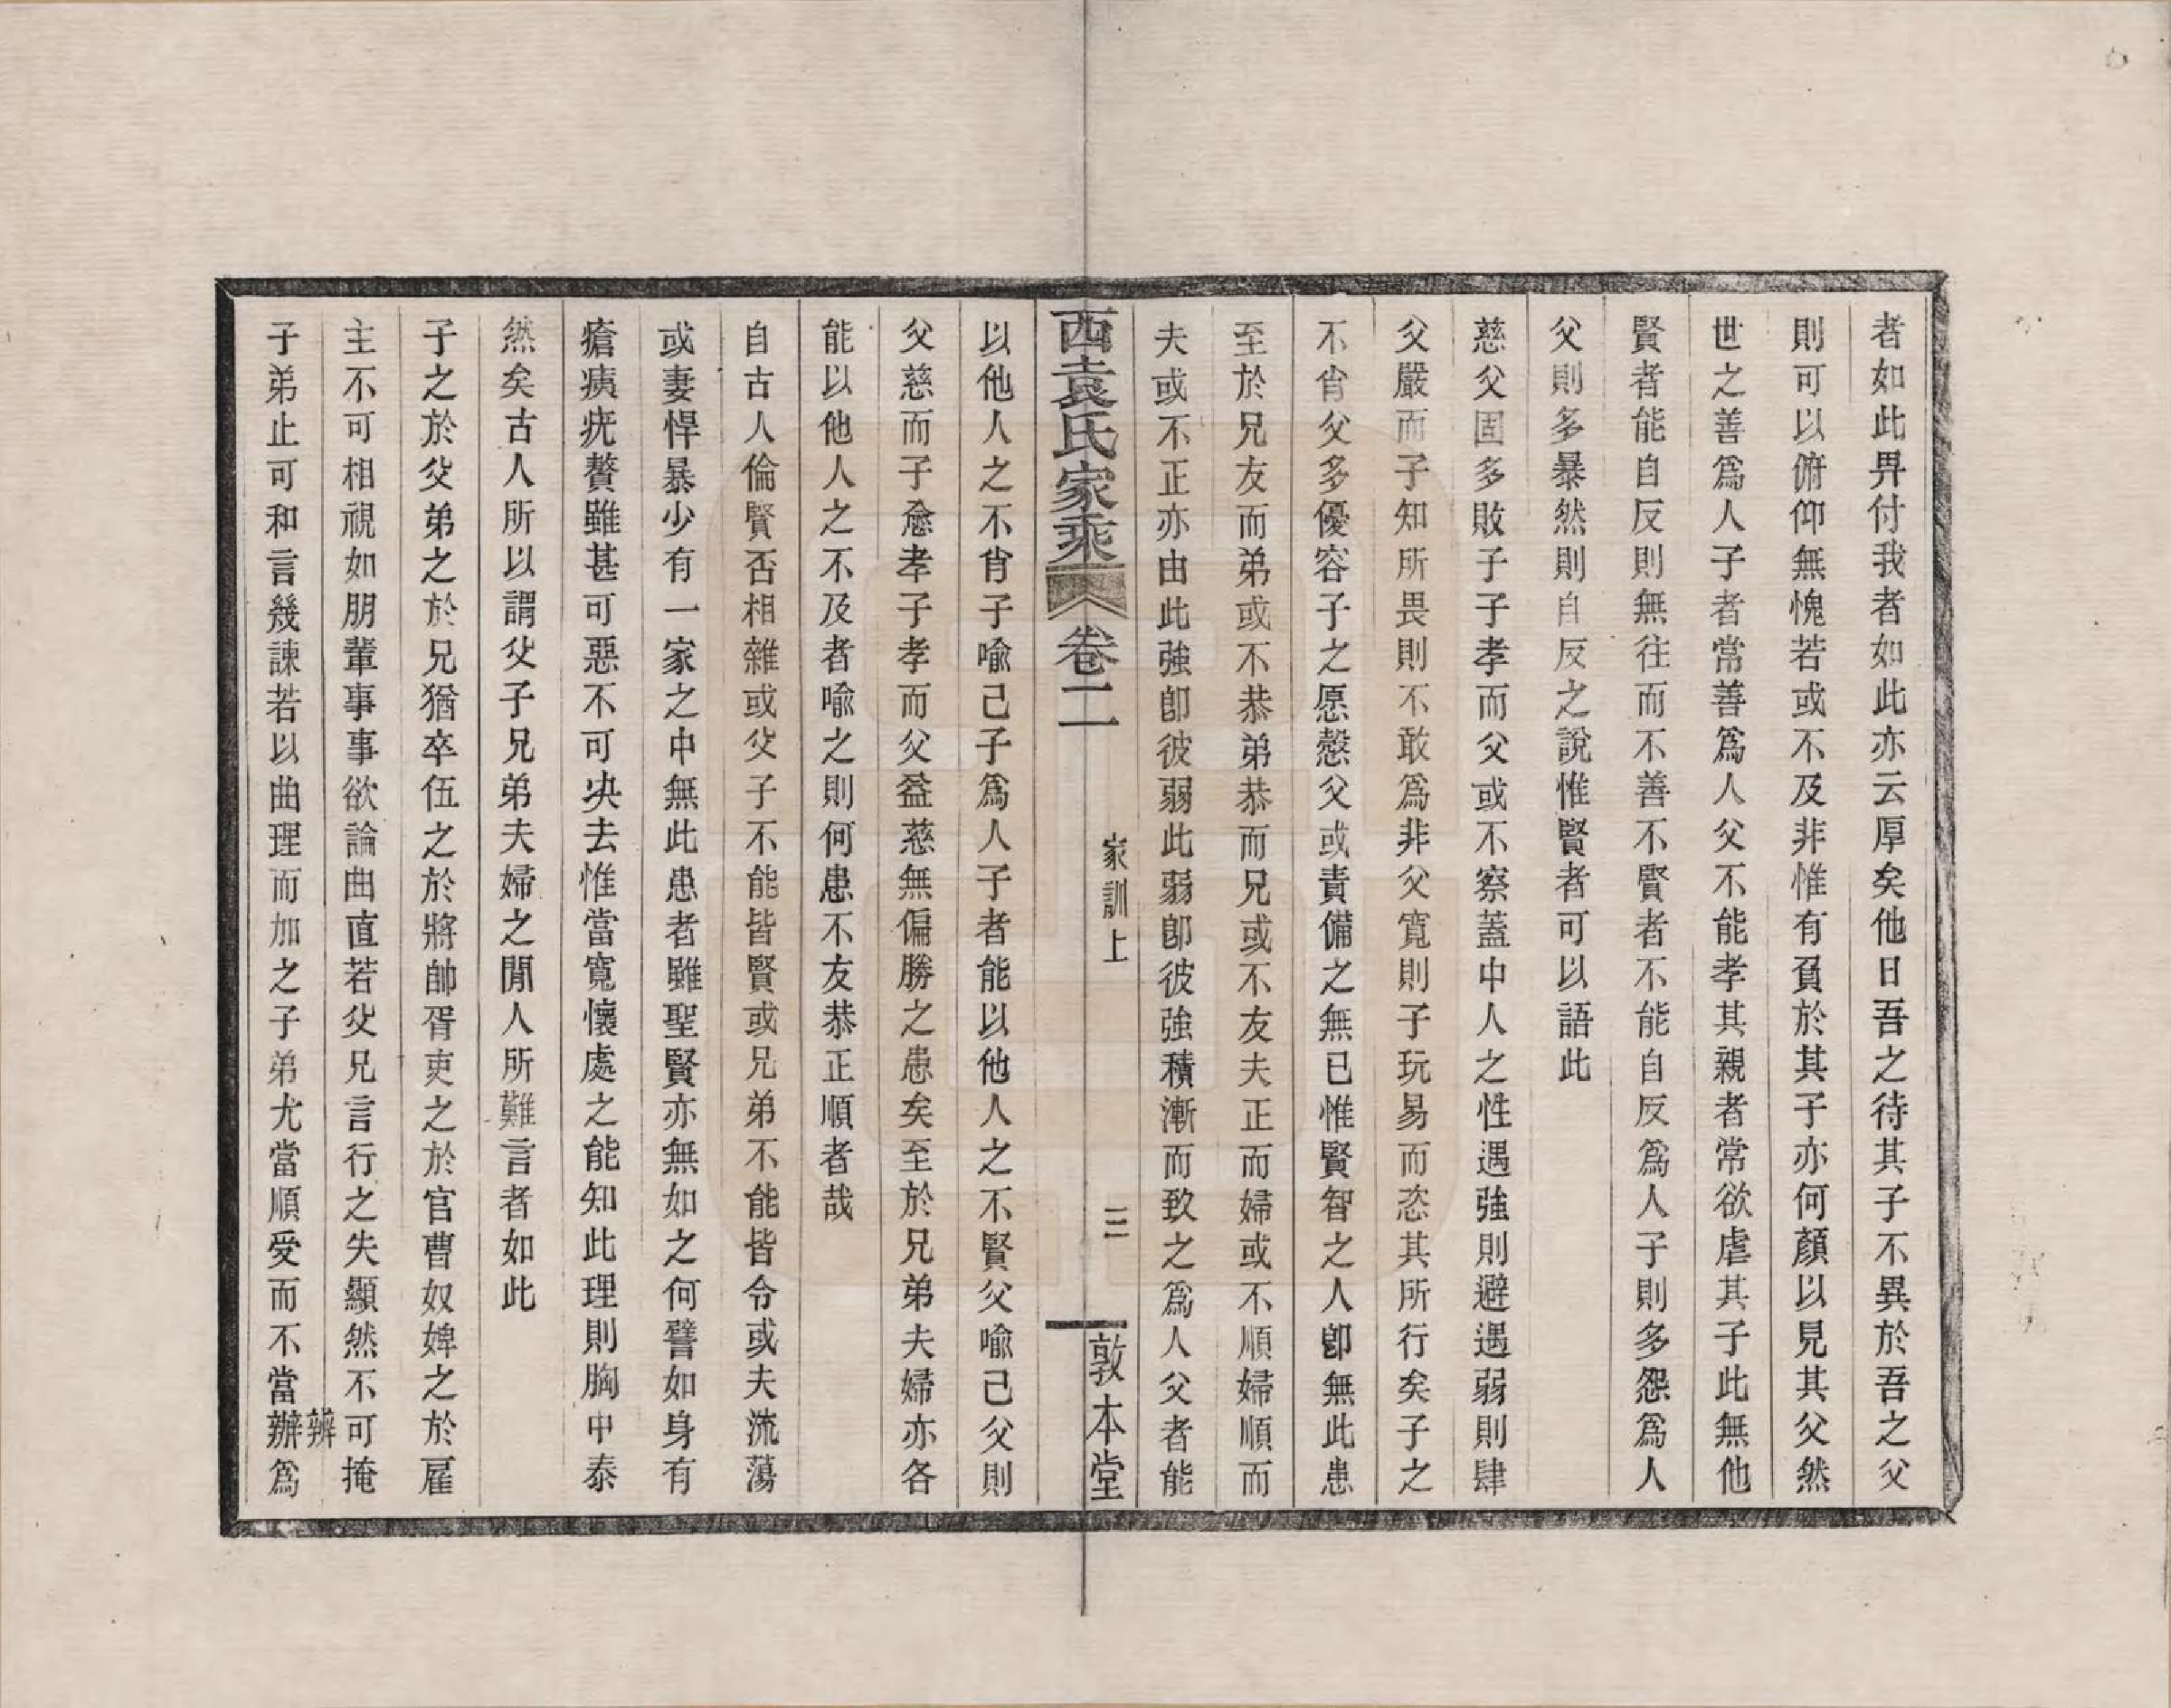 者如此畀付我者如此亦云厚矣他日吾之待其子不異於吾之父
則可以俯仰無愧若或不及非惟有負於其子亦何顏以見其父然
世之善爲人子者常善爲人父不能孝其親者常欲虐其子此無他
賢者能自反則無往而不善不賢者不能自反爲人子則多怨爲人
父則多暴然則自反之說惟賢者可以語此
慈父固多敗子子孝而父或不察蓋中人之性遇強則避遇弱則肆
父嚴而子知所畏則不敢爲非父寬則子玩易而恣其所行矣子之
不肖父多優容子之愿慤父或責備之無已惟賢智之人卽無此患
至於兄友而弟或不恭弟恭而兄或不友夫正而婦或不順婦順而
夫或不正亦由此強卽彼弱此弱卽彼強積漸而致之爲人父者能
西袁氏家乘
卷二
家訓上
三
敦本堂
以他人之不肖子喻己子爲人子者能以他人之不賢父喻己父則
父慈而子愈孝子孝而父益慈無偏勝之患矣至於兄弟夫婦亦各
能以他人之不及者喻之則何患不友恭正順者哉
自古人倫賢否相雜或父子不能皆賢或兄弟不能皆令或夫流蕩
或妻悍暴少有一家之中無此患者雖聖賢亦無如之何譬如身有
瘡痍疣贅雖甚可惡不可決去惟當寬懷處之能知此理則胸中泰
然矣古人所以謂父子兄弟夫婦之閒人所難言者如此
子之於父弟之於兄猶卒伍之於將帥胥吏之於官曹奴婢之於雇
主不可相視如朋輩事事欲論曲直若父兄言行之失顯然不可掩
子弟止可和言幾諫若以曲理而加之子弟尤當順受而不當辦辨爲